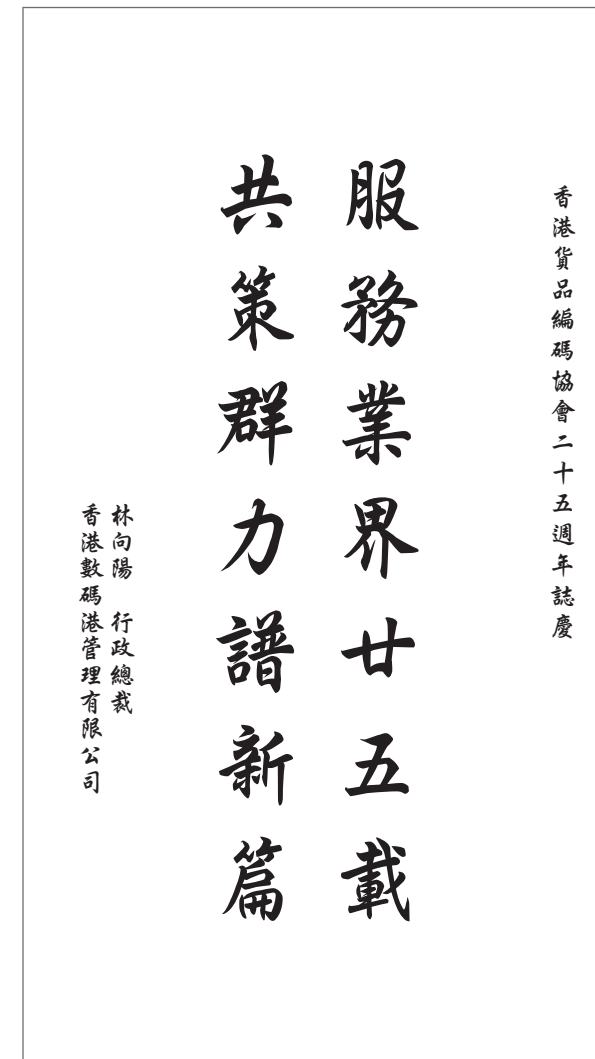 香港貨品編碼協會二十五週年誌慶
服務業界廿五載
共策群力譜新篇
林向陽　行政總裁
香港數碼港管理有限公司